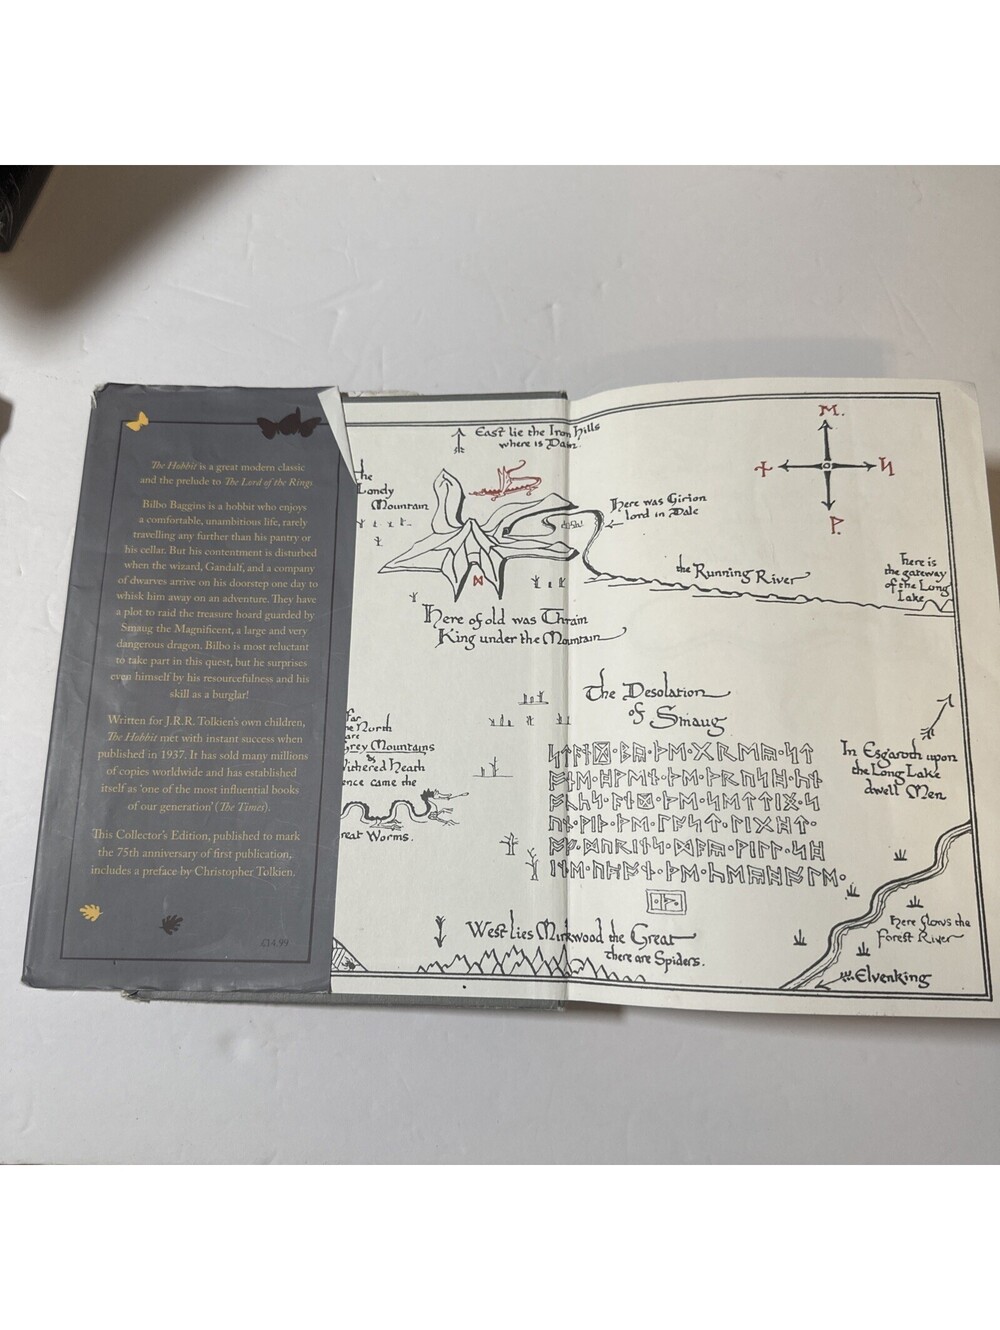 The Hobbit is a great modern classic
and the prelude to The Lord of the Rings
Bilbo Baggins is a hobbit who enjoys
a comfortable, unambitious life, rarely
travelling any further than his pantry or
his cellar. But his contentment is disturbed
when the wizard, Gandalf, and a company
of dwarves arrive on his doorstep one day to
whisk him away on an adventure. They have
a plot to raid the treasure hoard guarded by
Smaug the Magnificent, a large and very
dangerous dragon. Bilbo is most reluctant
to take part in this quest, but he surprises
even himself by his resourcefulness and his
skill as a burglar!
Written for J.R.R. Tolkien's own children,
The Hobbit met with instant success when
published in 1937. It has sold many millions
of copies worldwide and has established
itself as 'one of the most influential books
of our generation' (The Times).
This Collector's Edition, published to mark
the 75th anniversary of first publication,
includes a preface by Christopher Tolkien.
£14.99
East lie the Iron Hills
where is Dain.
the
Lonely
Mountain
ᛞ
Here was Girion
lord in Dale
the Running River
Here is
the gateway
of the Long
Lake
ᛖ.
ᚾ
ᛋ
ᚹ.
Here of old was Thrain
King under the Mountain
The Desolation
of Smaug
far
North
are
Grey Mountains
&
Withered Heath
came the
Great Worms.
ᛋᛏᚪᚾᛞ᛫ᛒᚣ᛫ᚦᛖ᛫ᚷᚱᛖᚣ᛫ᛋᛏ
ᚩᚾᛖ᛫ᚻᚹᛖᚾ᛫ᚦᛖ᛫ᚦᚱᚢᛋᚻ᛫ᚳᚾ
ᚩᚳᛋ᛫ᚪᚾᛞ᛫ᚦᛖ᛫ᛋᛖᛏᛏᛁᛝ᛫ᛋ
ᚢᚾ᛫ᚹᛁᚦ᛫ᚦᛖ᛫ᛚᚪᛋᛏ᛫ᛚᛁᚷᚻᛏ᛫
ᚩᚠ᛫ᛞᚢᚱᛁᚾᛋ᛫ᛞᚪᚣ᛫ᚹᛁᛚᛚ᛫ᛋᚻ
ᛁᚾᛖ᛫ᚢᛈᚩᚾ᛫ᚦᛖ᛫ᚳᛖᚣᚻᚩᛚᛖ᛫
In Esgaroth upon
the Long Lake
dwell Men
West lies Mirkwood the Great
there are Spiders.
Here flows the
Forest River
Elvenking